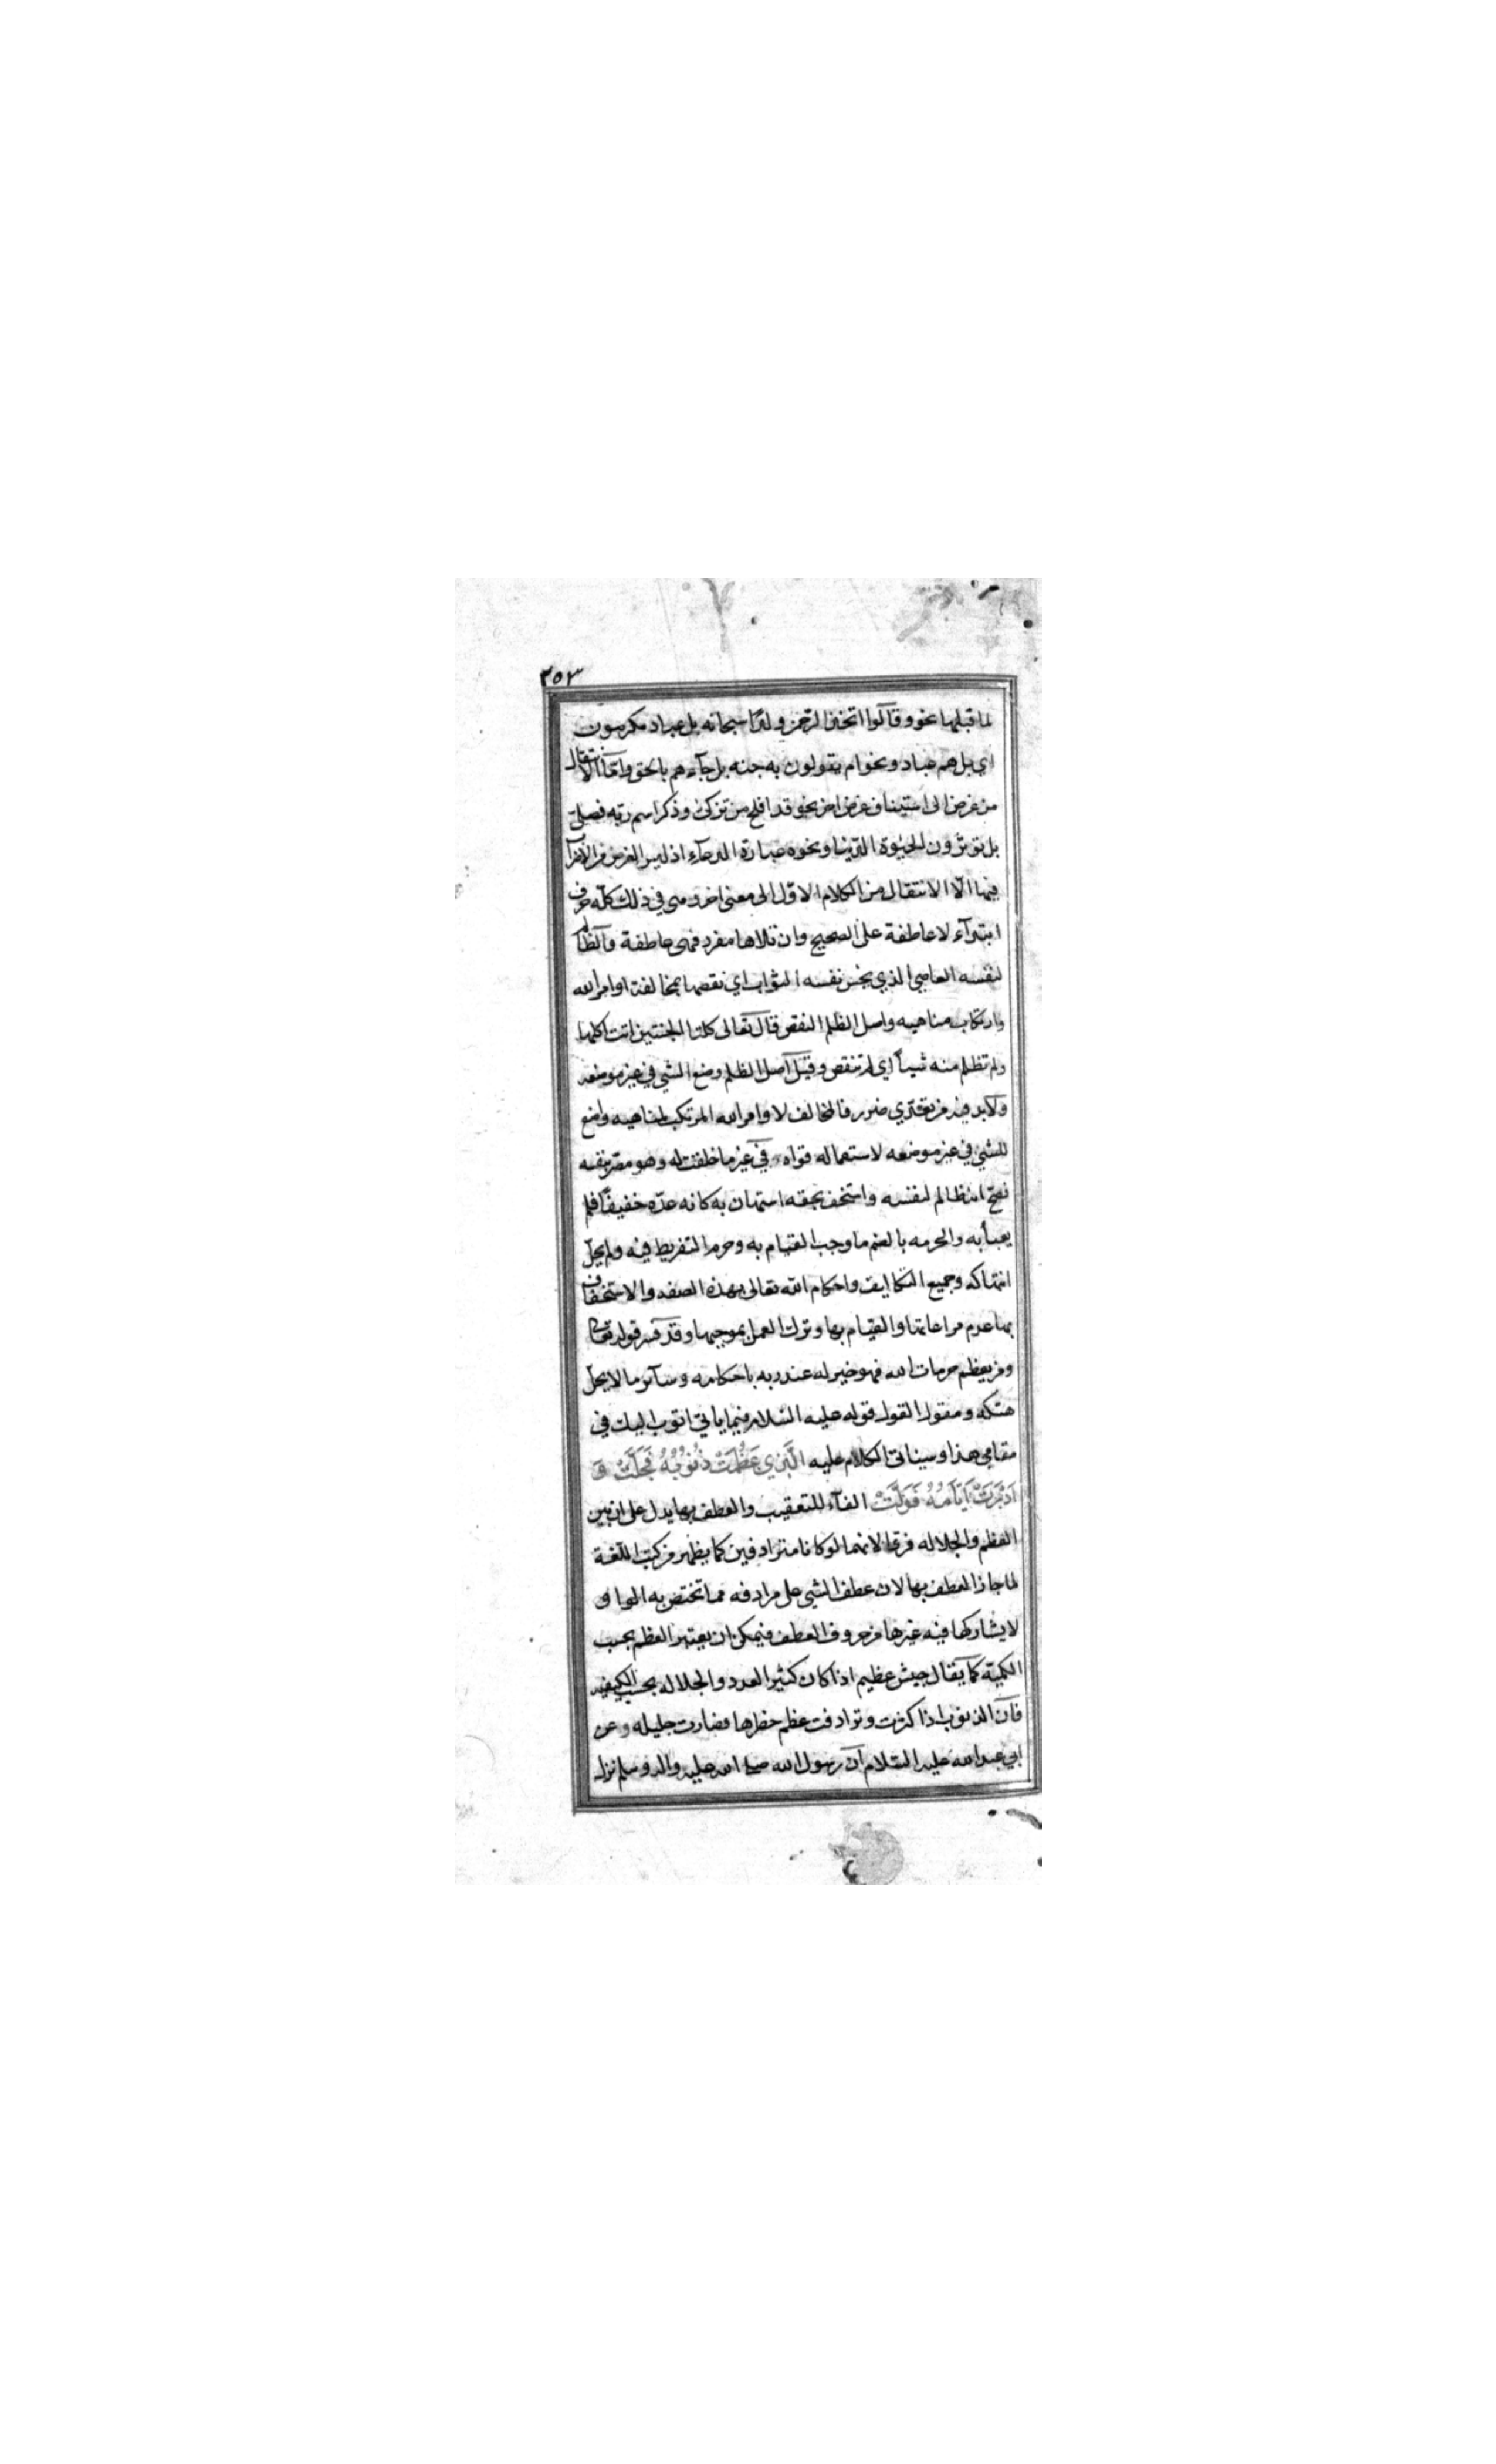 ٢٥٣
لما قبلها نحو وقالوا اتخذ الرحمن ولدًا سبحانه بل عباد مكرمون
اي بل هم عباد ونحو ام يقولون به جنه بل جآءهم بالحق وامّا الانتقال
من غرض الى استيناف غرض اخر نحو قد افلح من تزكى وذكر اسم ربّه فصلّى
بل تؤثرون الحيوة الدّنيا ونحوه عبارة الدعآء اذ ليس الغرض من
فيها الّا الانتقال من الكلام الاوّل الى معنى اخر وهي في ذلك كلّه حرف
ابتدآء لا عاطفة على الصحيح وان تلاها مفرد فهي عاطفة والظالم
لنفسه العاصي الذي يبخس نفسه الثواب اي نقصها بمخالفته اوامر الله
وارتكاب مناهيه واصل الظلم النقص قال تعالى كلتا الجنتين اتت اكلها
ولم تظلم منه شيأ اي لم تنقص وقيل اصل الظلم وضع الشي في غير موضعه
ولابد فيه من تعدّي ضرر فالمخالف لاوامر الله المرتكب لمناهيه واضع
للشي في غير موضعه لاستعماله قواه في غير ما خلقت له وهو مضر بنفسه
فصح انه ظالم لنفسه واستخف بحقه استهان به كانه عدّه خفيفًا فلم
يعبأ به والحرمه بالضم ما وجب القيام به وحرم التفريط فيه ولم يحلّ
انتهاكه وجميع التكاليف واحكام الله تعالى بهذه الصفه والاستخفاف
بها عدم مراعاتها والقيام بها وترك العمل بموجبها وقد فسر قوله تعالى
ومن يعظم حرمات الله فهو خير له عند ربه باحكامه وسآئر ما لا يحلّ
هتكه ومقول القول قوله عليه السّلام فيما ياتي اتوب اليك في
مقامي هذا وسياتي الكلام عليه الَّذي عَظُمَتْ ذُنُوبُهُ فَجَلَّتْ وَ
اَدْبَرَتْ اَيّامُهُ فَوَلَّتْ الفآء للتعقيب والعطف بها يدل على ان بين
العظم والجلاله فرقا لانهما لو كانا مترادفين كما يظهر من كتب اللّغة
لما جاز العطف بها لان عطف الشي على مرادفه مما تختص به الواو
لا يشاركها فيه غيرها من حروف العطف فيمكن ان يعتبر العظم بحسب
الكميّة كما يقال جيش عظيم اذا كان كثير العدد والجلاله بحسب الكيفيه
فانّ الذنوب اذا كثرت وترادفت عظم خطرها فصارت جليله وعن
ابي عبد الله عليه السّلام انّ رسول الله صلى الله عليه واله وسلم نزل